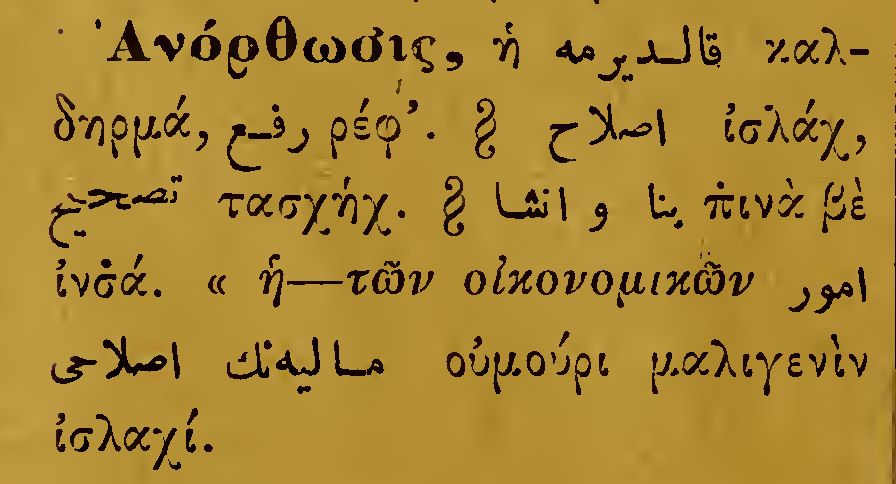 Ἀνόρθωσις, ἡ قالديرمه καλ-
δηρμά, رفع ρέφ’. § اصلاح ἰσλάχ,
تصحيح τασχήχ. § بنا و انشا π̇ινὰ βὲ
ἰνσ̇ά. « ἡ—τῶν οἰκονομικῶν امور
ماليه‌نك اصلاحى οὐμούρι μαλιγενὶν
ἰσλαχί.